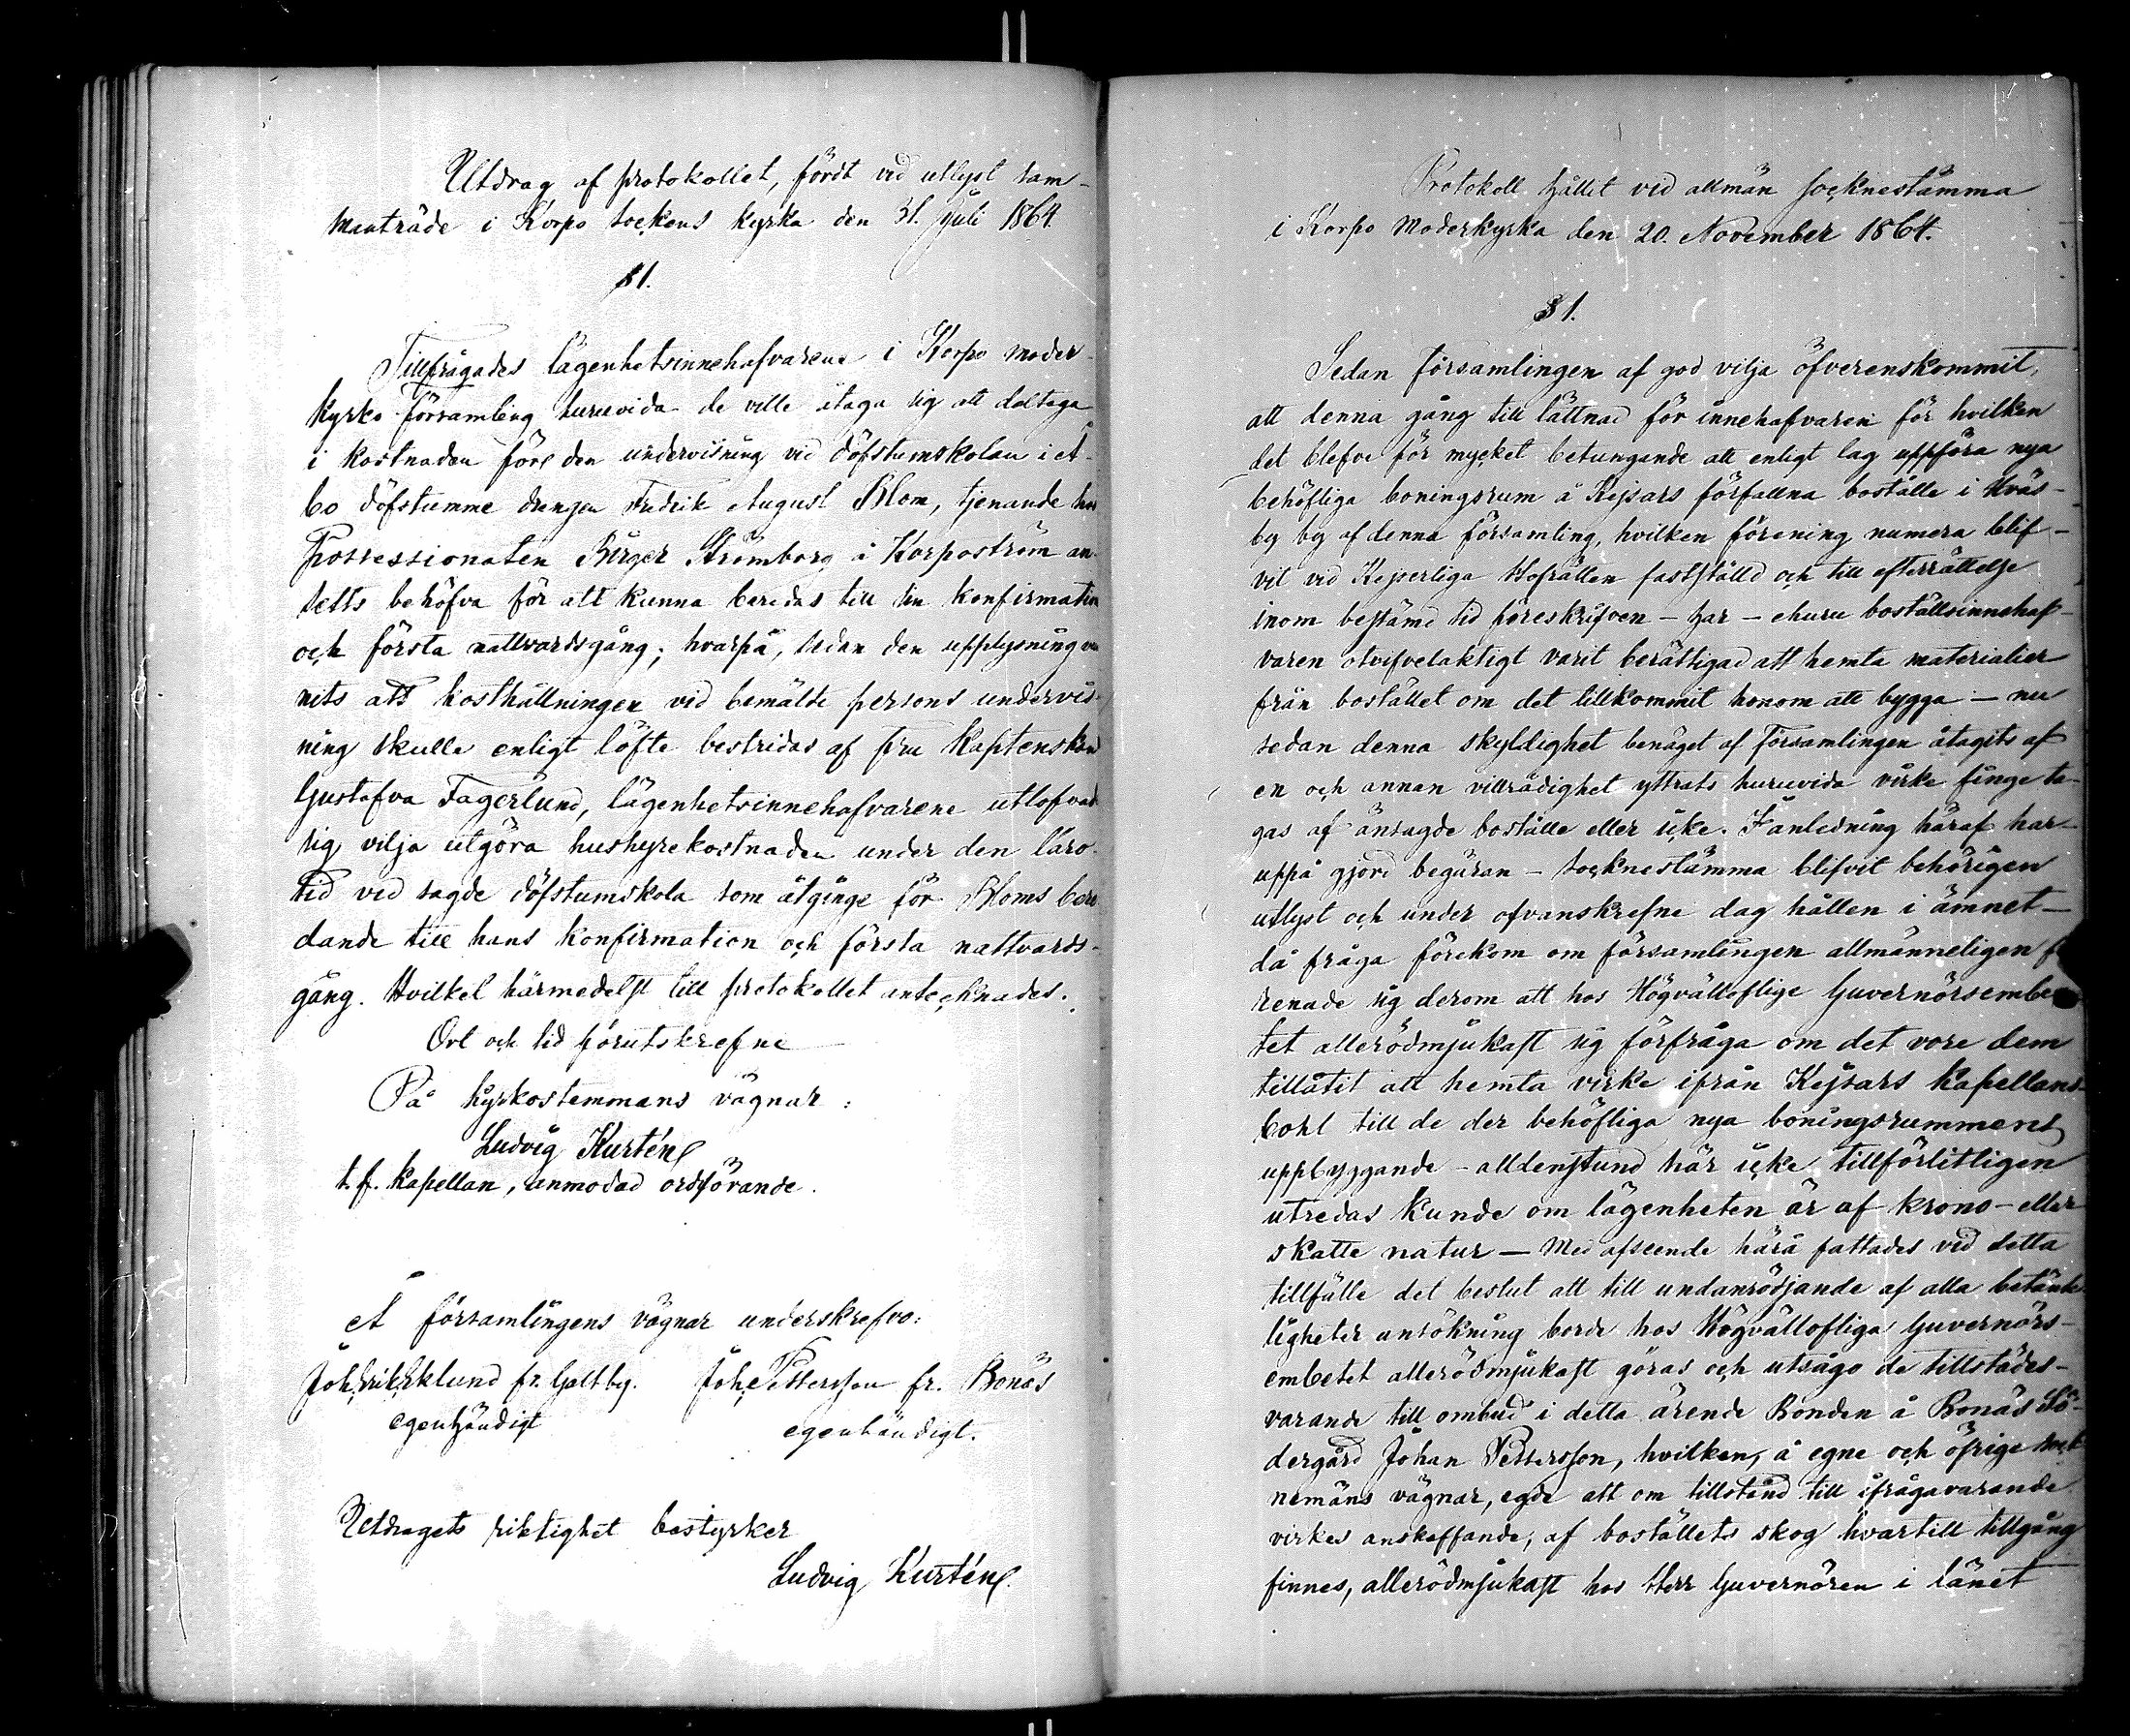 Utdrag af protokollet, fördt vid utlyst sam-
manträde i Korpo sockens kyrka den 31. Juli 1864.
§ 1.
Tillfrågades lägenhetsinnehafvarena i Korpo moder-
kyrko församling huruvida de ville åtaga sig att deltaga
i kostnaden före den undervisning vid döfstumskolan i Å-
bo döfstumme drengen Fredrik August Blom, tjenande hos
Possessionaten Birger Strömborg å Korpoström an-
setts behöfva för att kunna beredas till sin konfirmation
och första nattvardsgång; hvarpå, sedan den upplysning
nits att kosthållningen vid bemälde persons undervis-
ning skulle enligt löfte bestridas af fru Kaptenskan
Gustafva Fagerlund, lägenhetsinnehafvarene utlofvade
sig vilja utgöra hushyrekostnaden under den läro-
tid ved sagde döfstumskola som åtginge för Bloms bere
dande till hans konfirmation och första nattvards-
gång. Hvilket härmedelst till protokollet antecknades.
Ort och tid förutskrefne
På kyrkostemmans vägnar:
Ludvig Kurtén
t. f. Kapellan, anmodad ordförande.
Å församlingens vägnar underskrefvo:
Joh: Erik Eklund fr. Galtby. Joh: Pettersson fr. Bonäs
egenhändigt egenhändigt.
Utdragets riktighet bestyrker
Ludvig Kurtén
Protokoll hållit vid allmän socknestämma
i Korpo Moderkyrka den 20. November 1864.
§ 1.
Sedan församlingen af god vilja öfverenskommit,
att denna gång till lättnad för innehafvaren för hvilken
det blefve för mycket betungande att enligt lag uppföra nya
behöfliga boningsrum å Kejsars förfallna boställe i Kväs-
by by af denna församling, hvilken förening numera blif-
vit vid Kejserliga Hofrätten fastställd och till efterrättelse
inom bestämd tid föreskrifven – har – ehuru boställsinnehaf-
varen otvifvelaktigt varit berättigad att hemta materialier
från bostället om det tillkommit honom att bygga – nu
sedan denna skyldighet benäget af Församlingen åtagits af
en och annan villrådighet yttrats huruvida virke finge ta-
gas af änsagde boställe eller icke. I anledning häraf har –
uppå gjord begäran – socknestämma blifvit behörigen
utlyst och under ofvanskrefne dag hållen i ämnet –
då fråga förekom om församlingen allmänneligen fö
renade sig derom att hos Högvälloflige Guvernörsembe
tet allerödmjukast sig förfråga om det vore dem
tillåtit att hemta virke ifrån Kejsars Kapellans-
bohl till de der behöfliga nya boningsrummens
uppbyggande – alldenstund här icke tillförlitligen
utredas kunde om lägenheten är af krono- eller
skatte natur – Med afseende härå fattades vid detta
tillfälle det beslut att till undanrödjande af alla betänk
ligheter ansökning borde hos Högvällofliga Guvernörs-
embetet allerödmjukast göras och utsågo de tillstädes-
varande till ombud i detta ärende Bonden å Bonäs Sö-
dergård Johan Pettersson, hvilken, å egne och öfrige sock
nemäns vägnar, egde att om tillstånd till ifrågavarande
virkes anskaffande, af boställets skog hvartill tillgång
finnes, allerödmjukast hos Herr Guvernören i länet